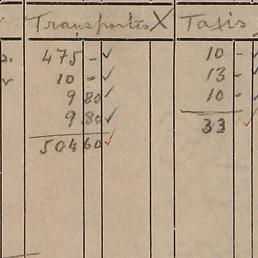 Transportes X Taxis
475 - ✓ 10 - ✓
10 - ✓ 13 - ✓
9 80 ✓ 10 - ✓
9 80 ✓ 33 ✓
504 60 ✓